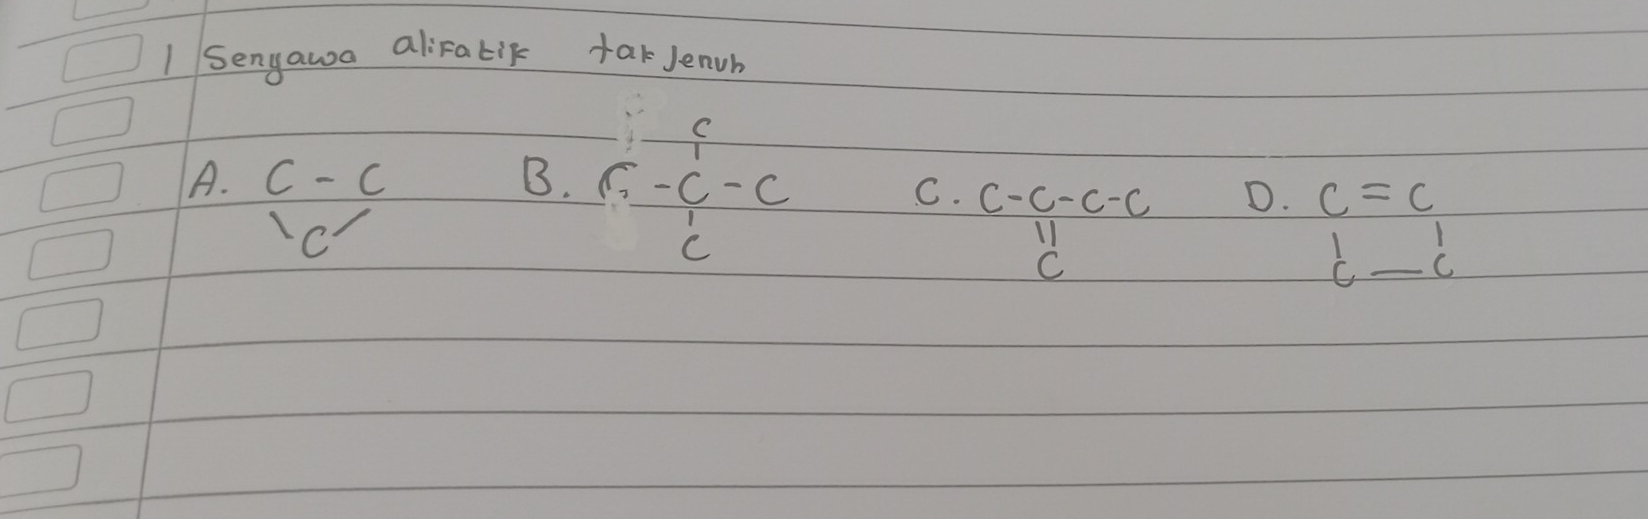 1 Senyawa alifatik tak Jenuh
C
A. C - C B. C - C - C C. C-C-C-C D. C = C
\ C / | C || C | |
C — C